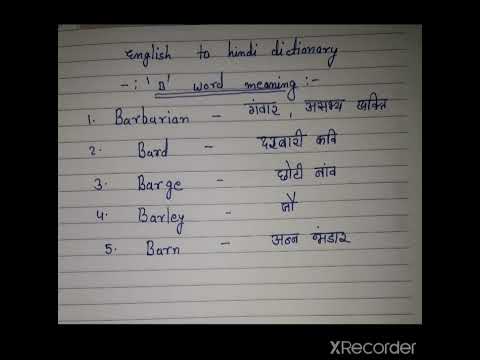 English to hindi dictionary
-: 'B' word meaning :-
1. Barbarian - गंवार, असभ्य व्यक्ति
2. Bard - दरबारी कवि
3. Barge - छोटी नांव
4. Barley - जौ
5. Barn - अन्न भंडार
XRecorder